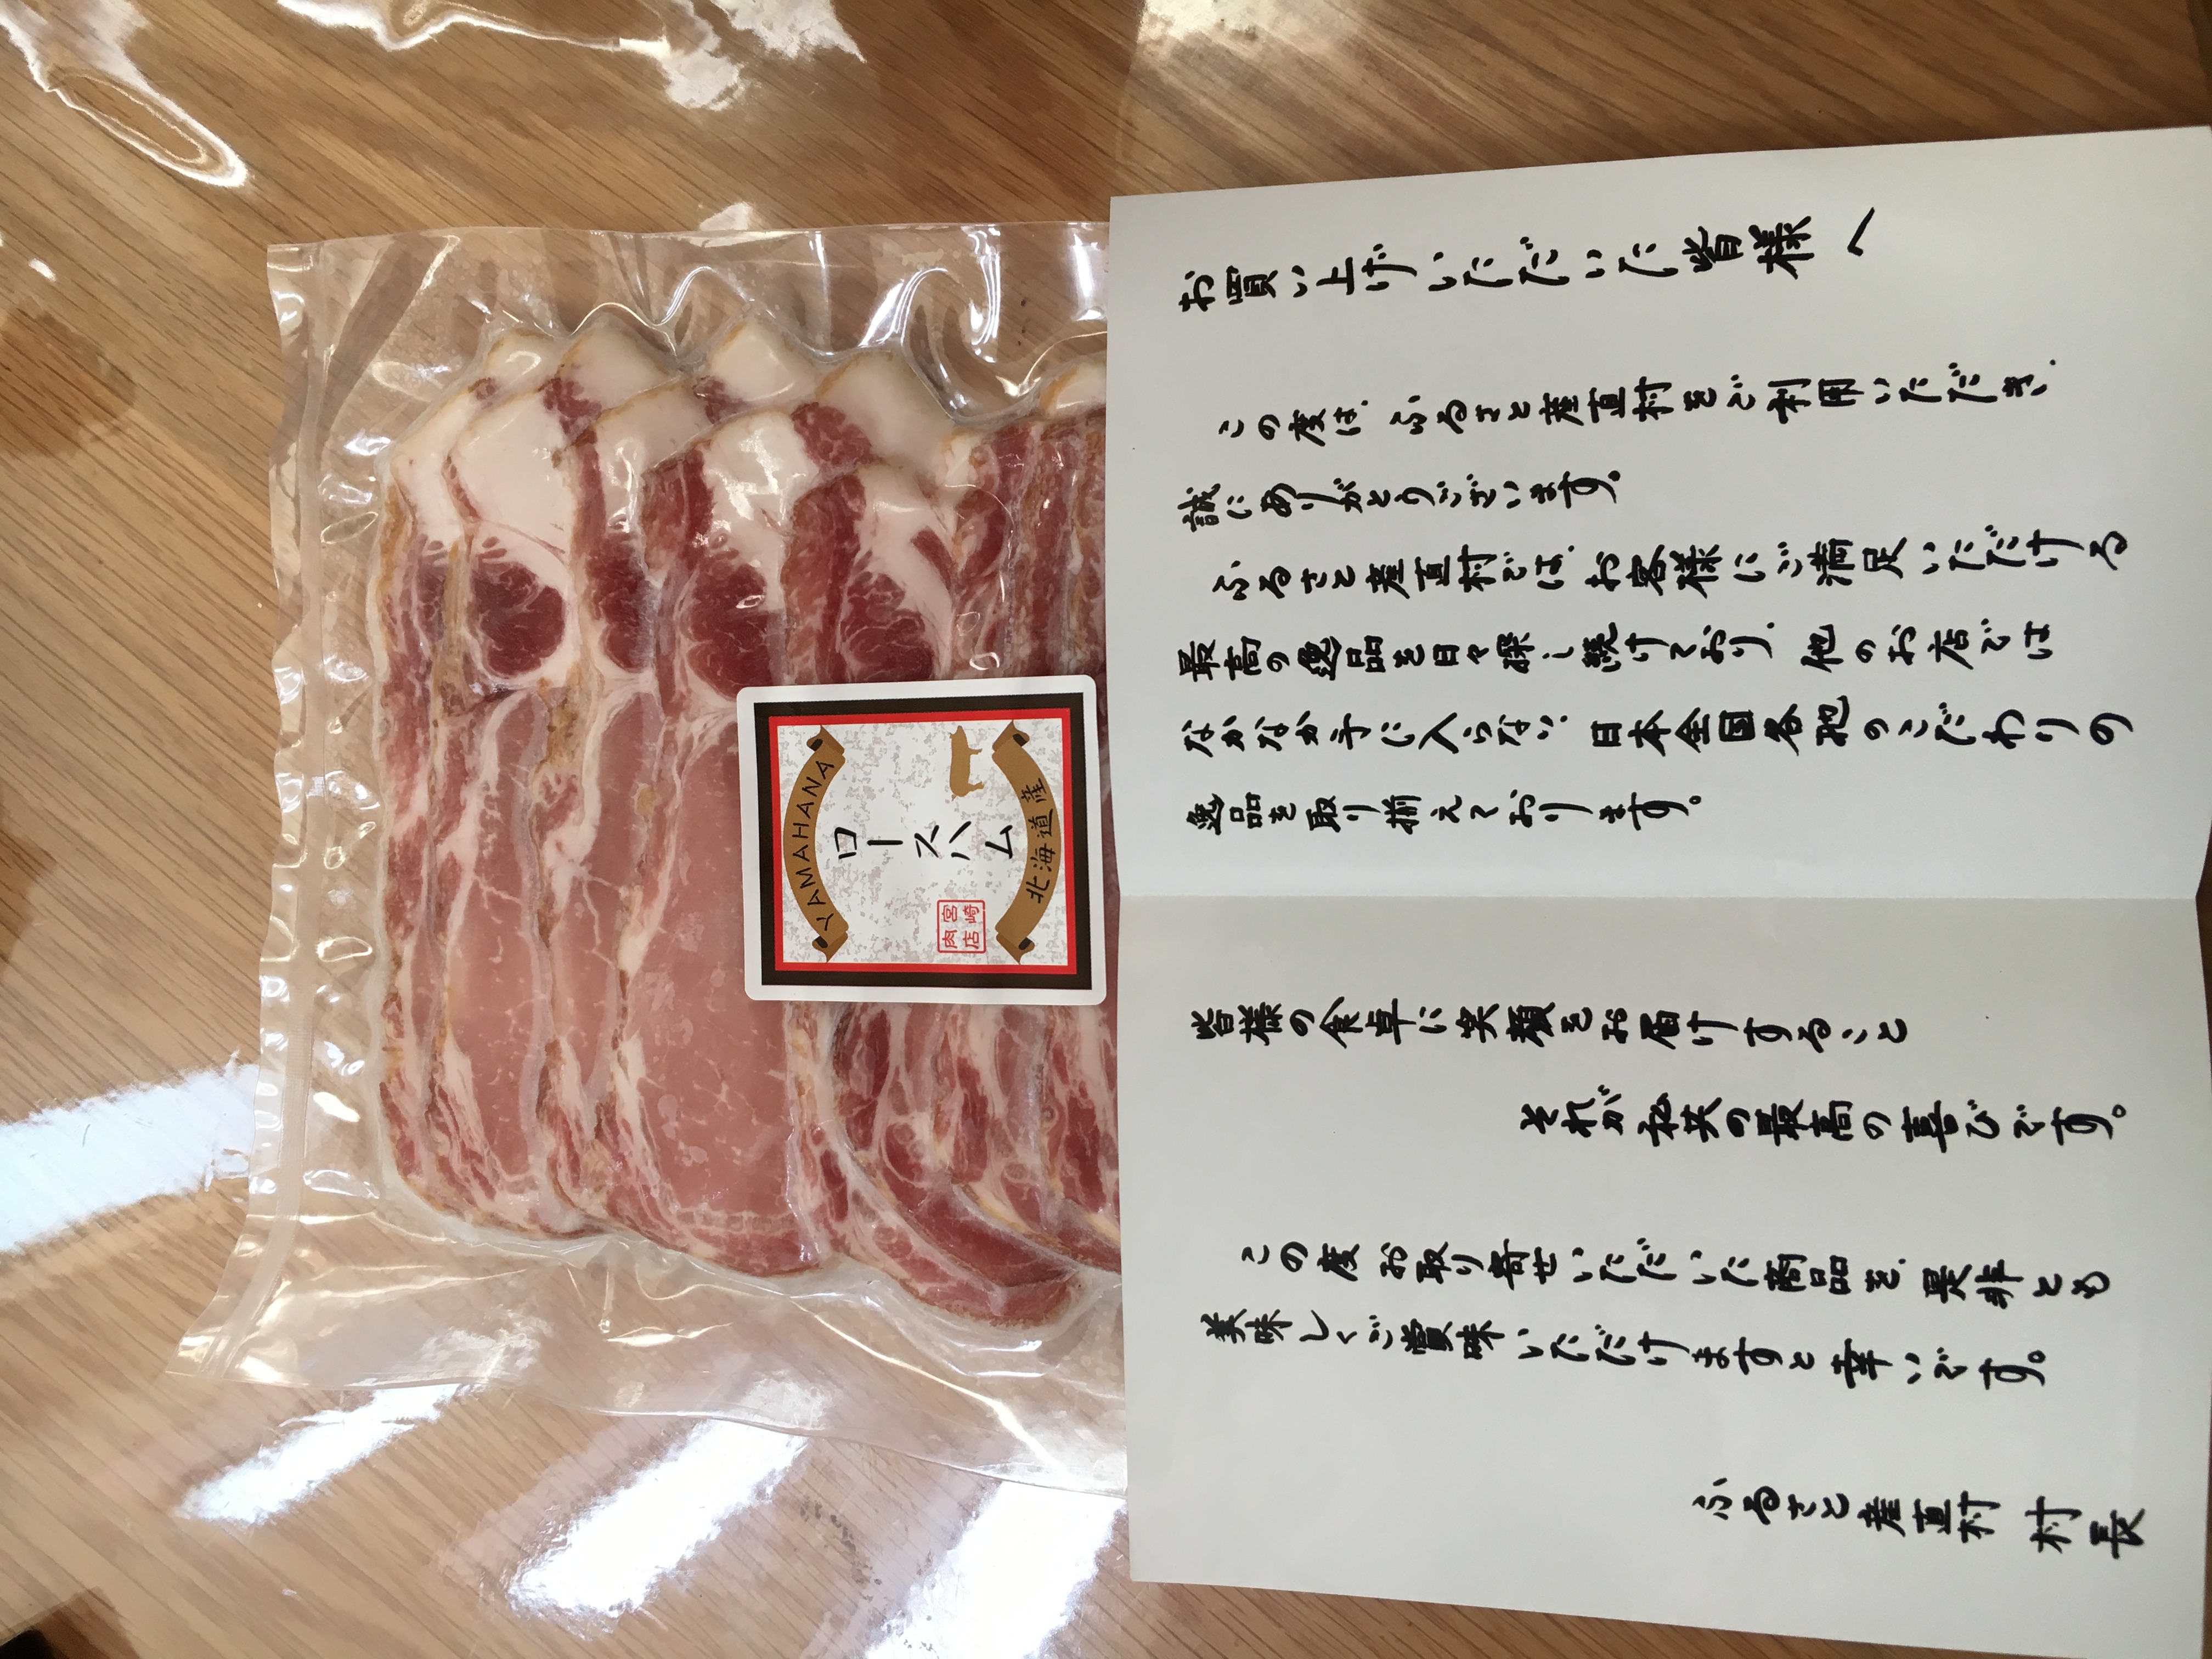 お買い上げいただいた皆様へ
この度は、ふるさと産直村をご利用いただき、
誠にありがとうございます。
ふるさと産直村では、お客様にご満足いただける
最高の逸品を日々探し続けており、他のお店では
なかなか手に入らない、日本全国各地のこだわりの
逸品を取り揃えております。
皆様の食卓に笑顔をお届けすること
それが私共の最高の喜びです。
この度お取り寄せいただいた商品を、是非とも
美味しくご賞味いただけますと幸いです。
ふるさと産直村 村長
YAMAHANA
ロースハム
北海道産
宮崎
肉店